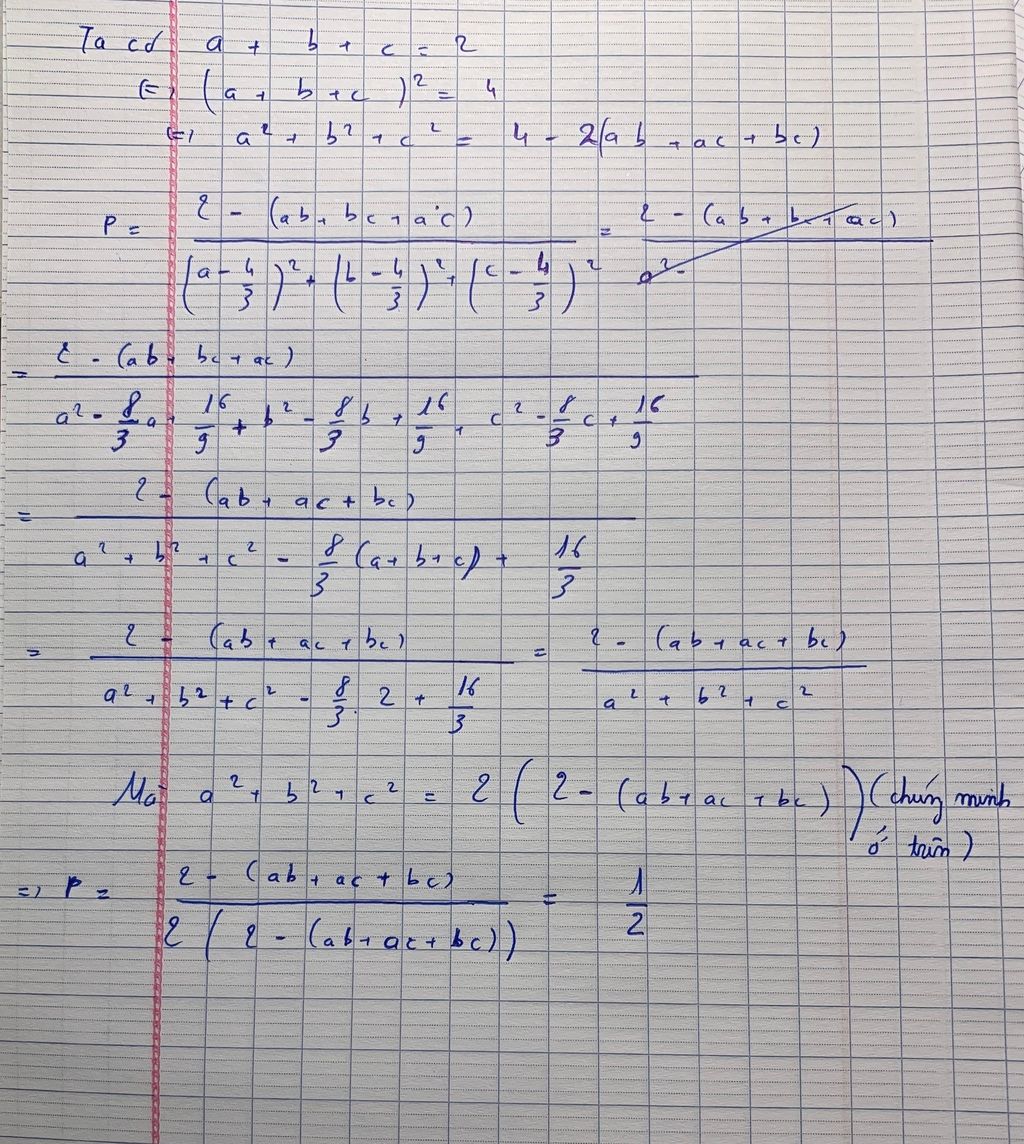 Ta có a + b + c = 2
(=) (a + b + c)² = 4
(=) a² + b² + c² = 4 - 2(ab + ac + bc)
P = \frac{2 - (ab + bc + ac)}{(a - \frac{4}{3})² + (b - \frac{4}{3})² + (c - \frac{4}{3})²} = \frac{2 - (ab + bc + ac)}{a² -}
= \frac{2 - (ab + bc + ac)}{a² - \frac{8}{3}a + \frac{16}{9} + b² - \frac{8}{3}b + \frac{16}{9} + c² - \frac{8}{3}c + \frac{16}{9}}
= \frac{2 - (ab + ac + bc)}{a² + b² + c² - \frac{8}{3}(a + b + c) + \frac{16}{3}}
= \frac{2 - (ab + ac + bc)}{a² + b² + c² - \frac{8}{3} . 2 + \frac{16}{3}} = \frac{2 - (ab + ac + bc)}{a² + b² + c²}
Mà a² + b² + c² = 2 ( 2 - (ab + ac + bc) ) (chứng minh
ở trên)
=) P = \frac{2 - (ab + ac + bc)}{2 ( 2 - (ab + ac + bc))} = \frac{1}{2}